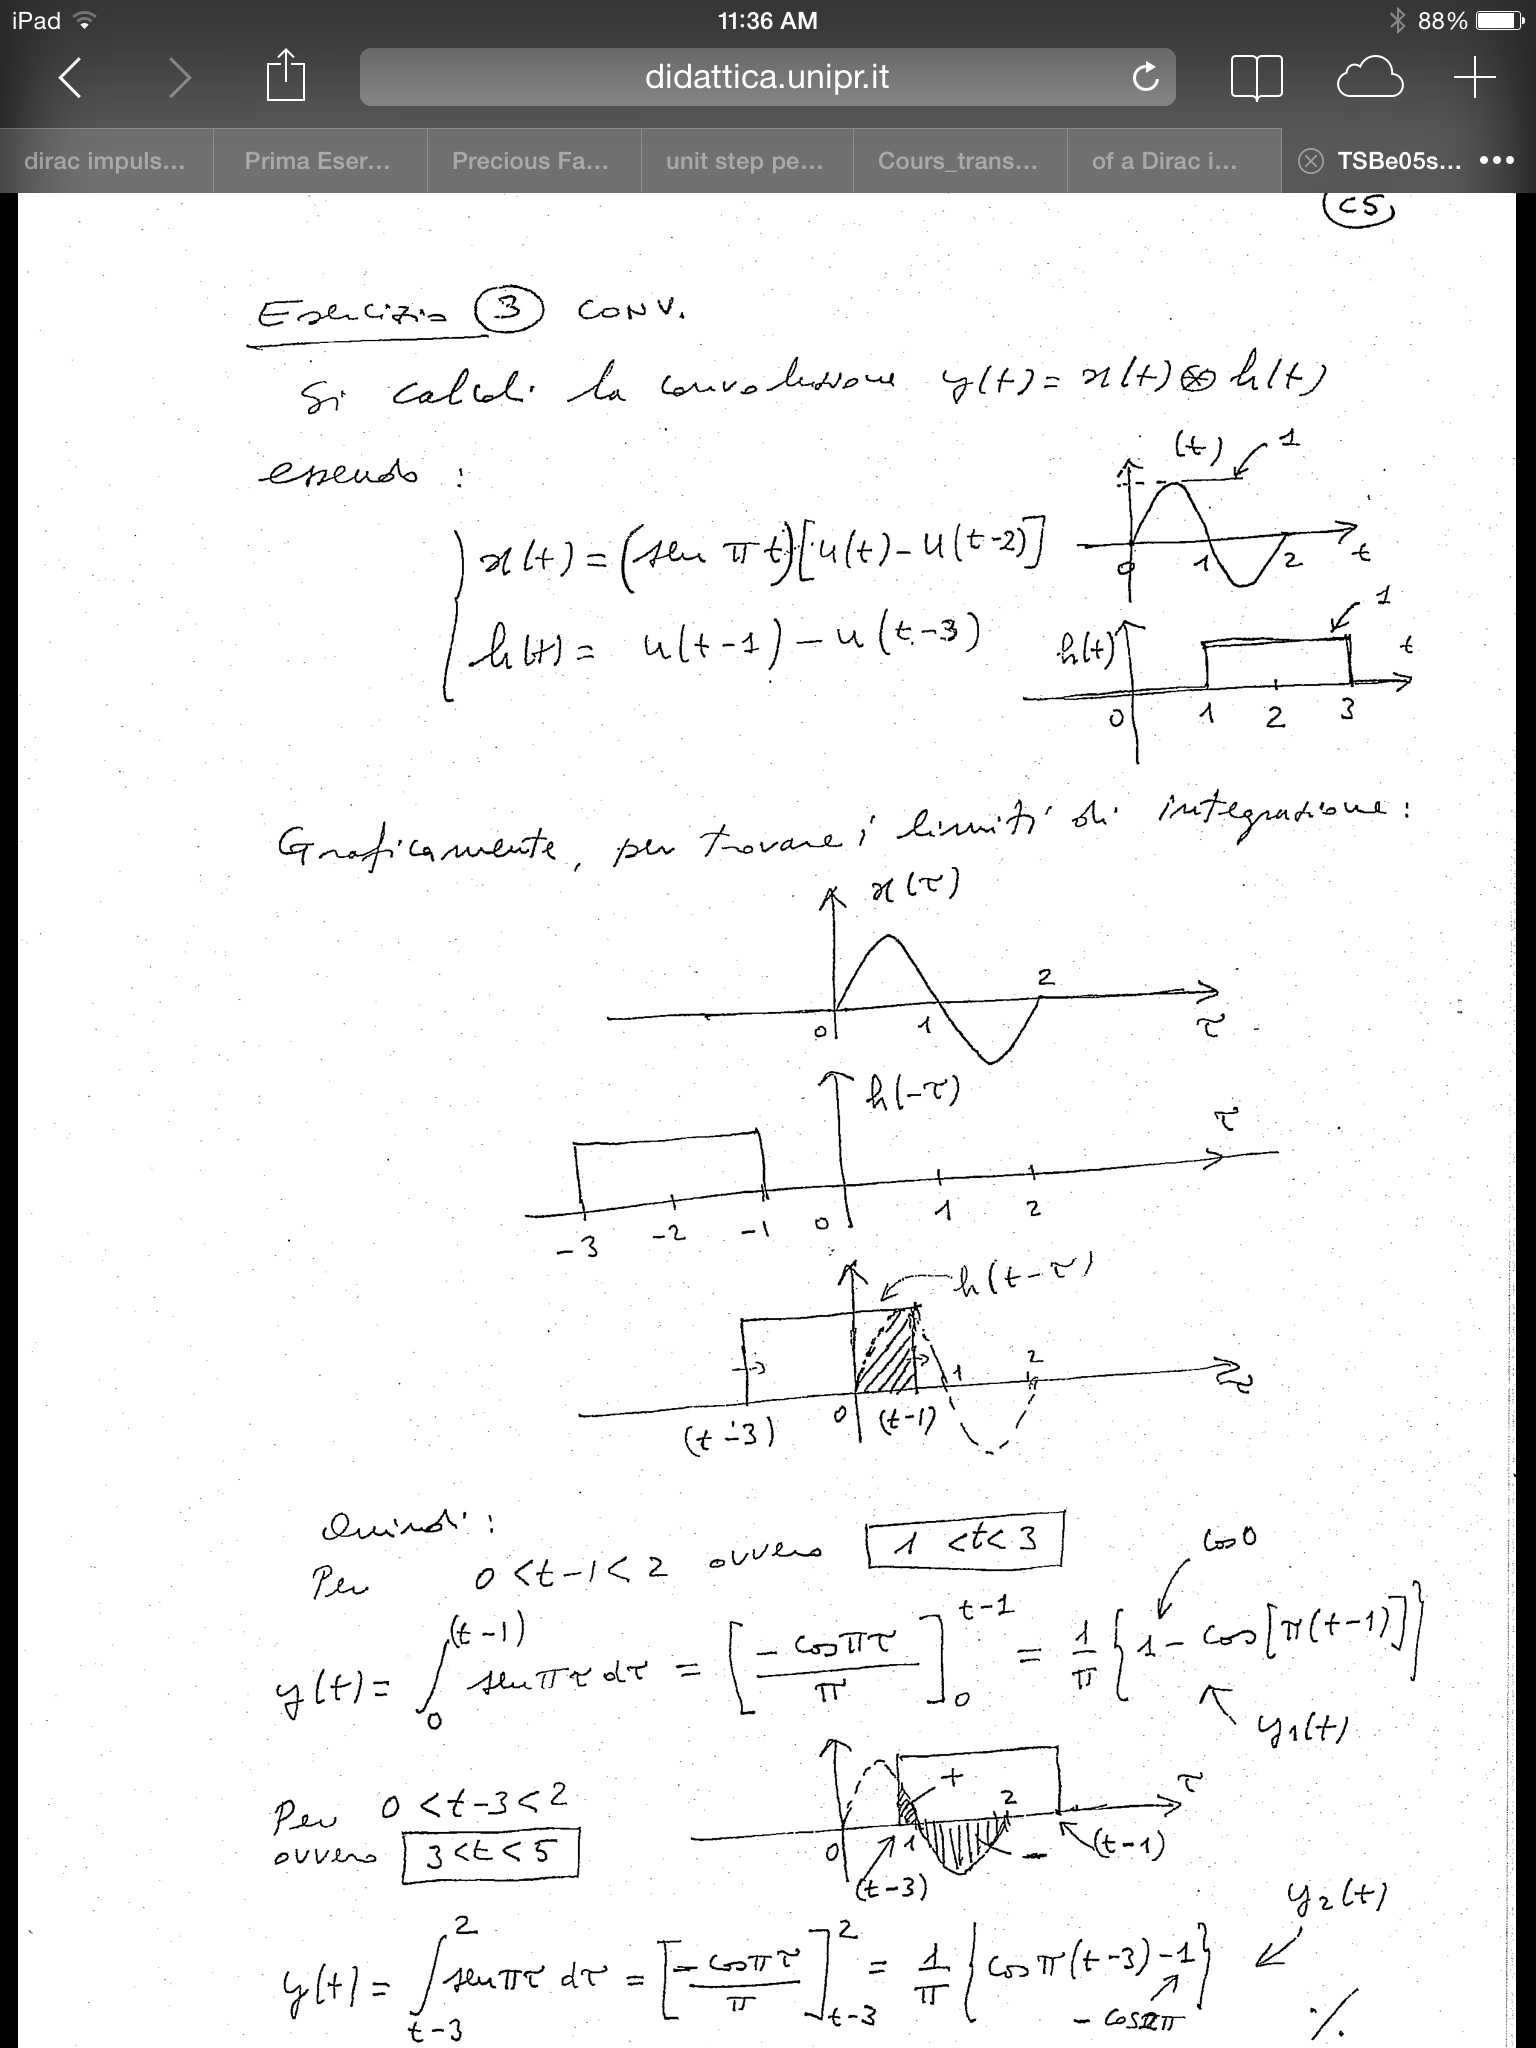 iPad 11:36 AM 88%
didattica.unipr.it
dirac impuls... Prima Eser... Precious Fa... unit step pe... Cours_trans... of a Dirac i... TSBe05s... •••
C5
Esercizio 3 CONV.
Si calcoli la convoluzione y(t) = x(t) ⊗ h(t)
essendo :
(t) 1
x(t) = (sen πt)[u(t) - u(t-2)]
0 1 2 t
h(t) = u(t-1) - u(t-3)
h(t) 1 t
0 1 2 3
Graficamente, per trovare i limiti di integrazione :
x(τ)
2
0 1 τ
h(-τ)
τ
-3 -2 -1 0 1 2
h(t-τ)
1 2
(t-3) 0 (t-1) τ
Quindi :
Per 0 < t-1 < 2 ovvero 1 < t < 3
cos0
y(t) = ∫₀^(t-1) sen πτ dτ = [-cos πτ / π]₀^(t-1) = 1/π {1 - cos[π(t-1)]}
y₁(t)
Per 0 < t-3 < 2
ovvero 3 < t < 5
+ 2 τ
0 1 - (t-1)
(t-3)
y₂(t)
y(t) = ∫_(t-3)^2 sen πτ dτ = [-cos πτ / π]_(t-3)^2 = 1/π {cos π(t-3) - 1}
- cos2π
·/.